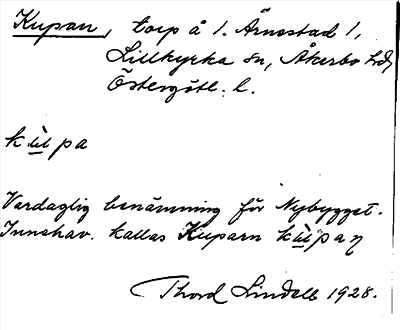 Kupan, torp å 1. Årnestad 1,
Lillkyrka sn, Åkerbo hd,
Östergötl. l.
kùpa
Vardaglig benämning för Nybygget.
Innehav. kallas Kuparn kùpaṇ
Thord Lindell 1928.